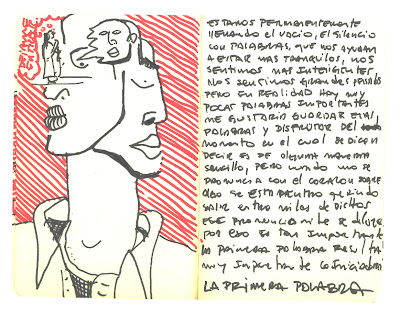 ESTAMOS PERMANENTEMENTE
LLENANDO EL VACIO, EL SILENCIO
CON PALABRAS, QUE NOS AYUDAN
A ESTAR MAS TRANQUILOS, NOS
SENTIMOS MAS INTELIGENTES,
NOS SENTIMOS GRANDES
PERO EN REALIDAD HAY MUY
POCAS PALABRAS IMPORTANTES
ME GUSTARIA GUARDAR ESAS
PALABRAS Y DISFRUTAR DEL
MOMENTO EN EL CUAL SE DICEN
DECIR ES DE ALGUNA MANERA
SENCILLO, PERO CUANDO UNO SE
PRONUNCIA CON EL CORAZON SOBRE
ALGO SE ESTA DENTRO
SALIR ENTRE MILES DE DICHOS
ESE
POR ESO ES TAN IMPORTANTE
LA PRIMERA PALABRA
MUY IMPORTANTE
LA PRIMERA PALABRA